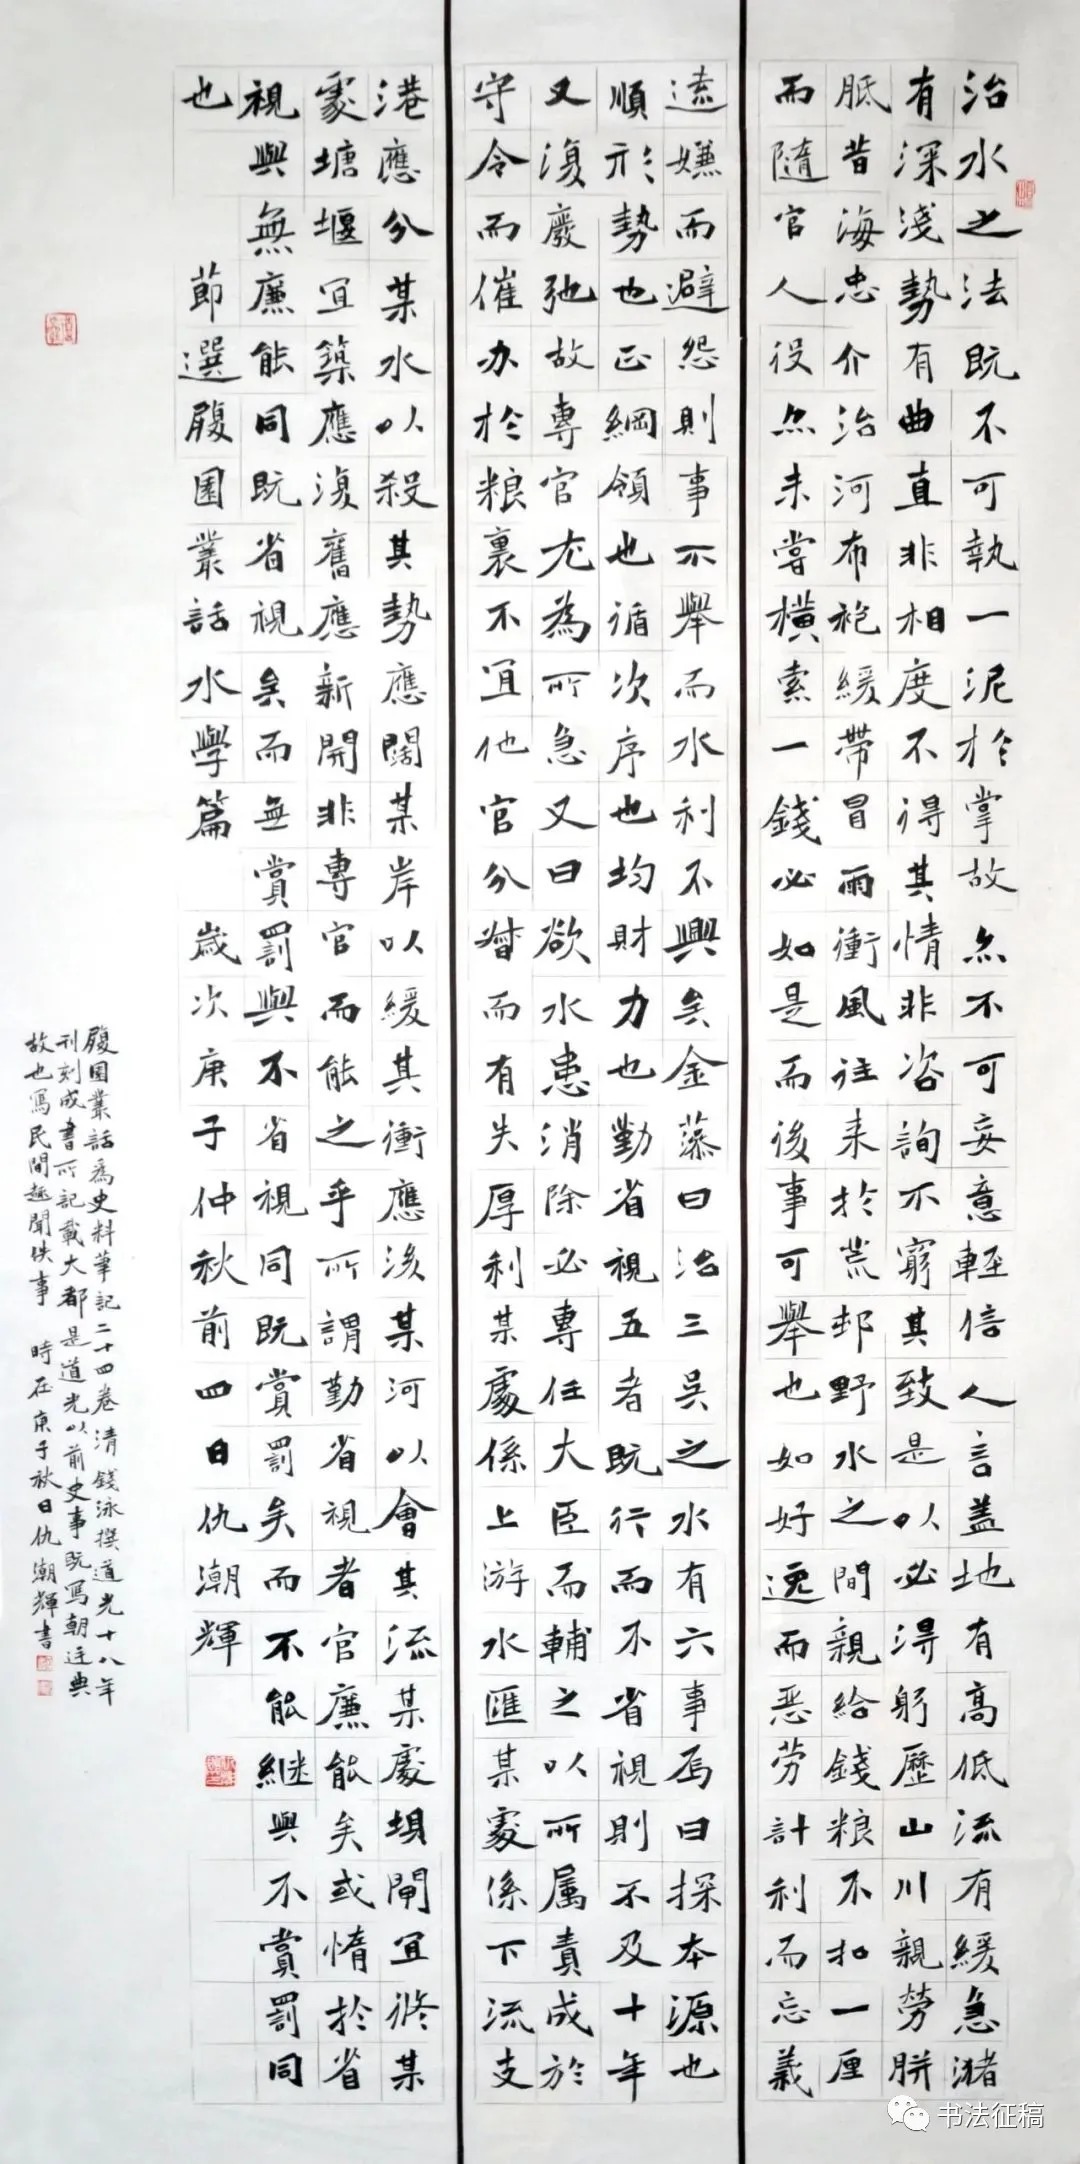 治水之法既不可執一泥於掌故亦不可妄意輕信人言蓋地有高低流有緩急潴
有深淺勢有曲直非相度不得其情非咨詢不窮其致是以必得躬歷山川親勞胼
胝昔海忠介治河布袍緩帶冒雨衝風往来於荒邨野水之間親給錢粮不扣一厘
而隨官人役亦未嘗橫索一錢必如是而後事可舉也如好逸而惡劳計利而忘義
遠嫌而避怨則事不舉而水利不興矣金藻曰治三吴之水有六事焉曰探本源也
順形勢也正綱領也循次序也均財力也勤省視五者既行而不省視則不及十年
又復廢弛故專官尤為所急又曰欲水患消除必專任大臣而輔之以所属責成於
守令而催办於粮裏不宜他官分督而有失厚利某處係上游水匯某處係下流支
港應分某水以殺其勢應闊某岸以緩其衝應浚某河以會其流某處壩閘宜修某
處塘堰宜築應復舊應新開非專官而能之乎所謂勤省視者官廉能矣或惰於省
視與無廉能同既省視矣而無賞罰與不省視同既賞罰矣而不能继與不賞罰同
也 節選履園叢話水學篇 歲次庚子仲秋前四日仇潮輝
履園叢話為史料筆記二十四卷清錢泳撰道光十八年
刊刻成書所記載大都是道光以前史事既寫朝廷典
故也寫民間趣聞佚事 時在庚子秋日仇潮輝書
书法征稿